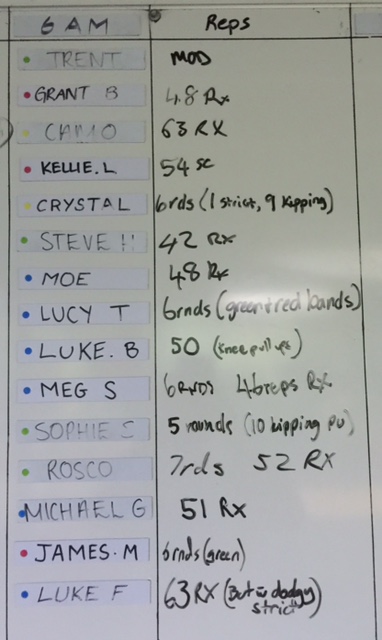 6 AM Reps
TRENT MOD
GRANT B 48 Rx
CAMO 63 RX
KELLIE.L 54 sc
CRYSTAL 6rds (1 strict, 9 kipping)
STEVE H 42 RX
MOE 48 Rx
LUCY T 6rnds (green+red bands)
LUKE.B 50 (knee pull ups)
MEG S 6RNDS 46reps RX
SOPHIE 5 rounds (10 kipping PU)
ROSCO 7rds 52 RX
MICHAEL G 51 Rx
JAMES.M 6rnds (green)
LUKE F 63 RX (But w dodgy
strict)